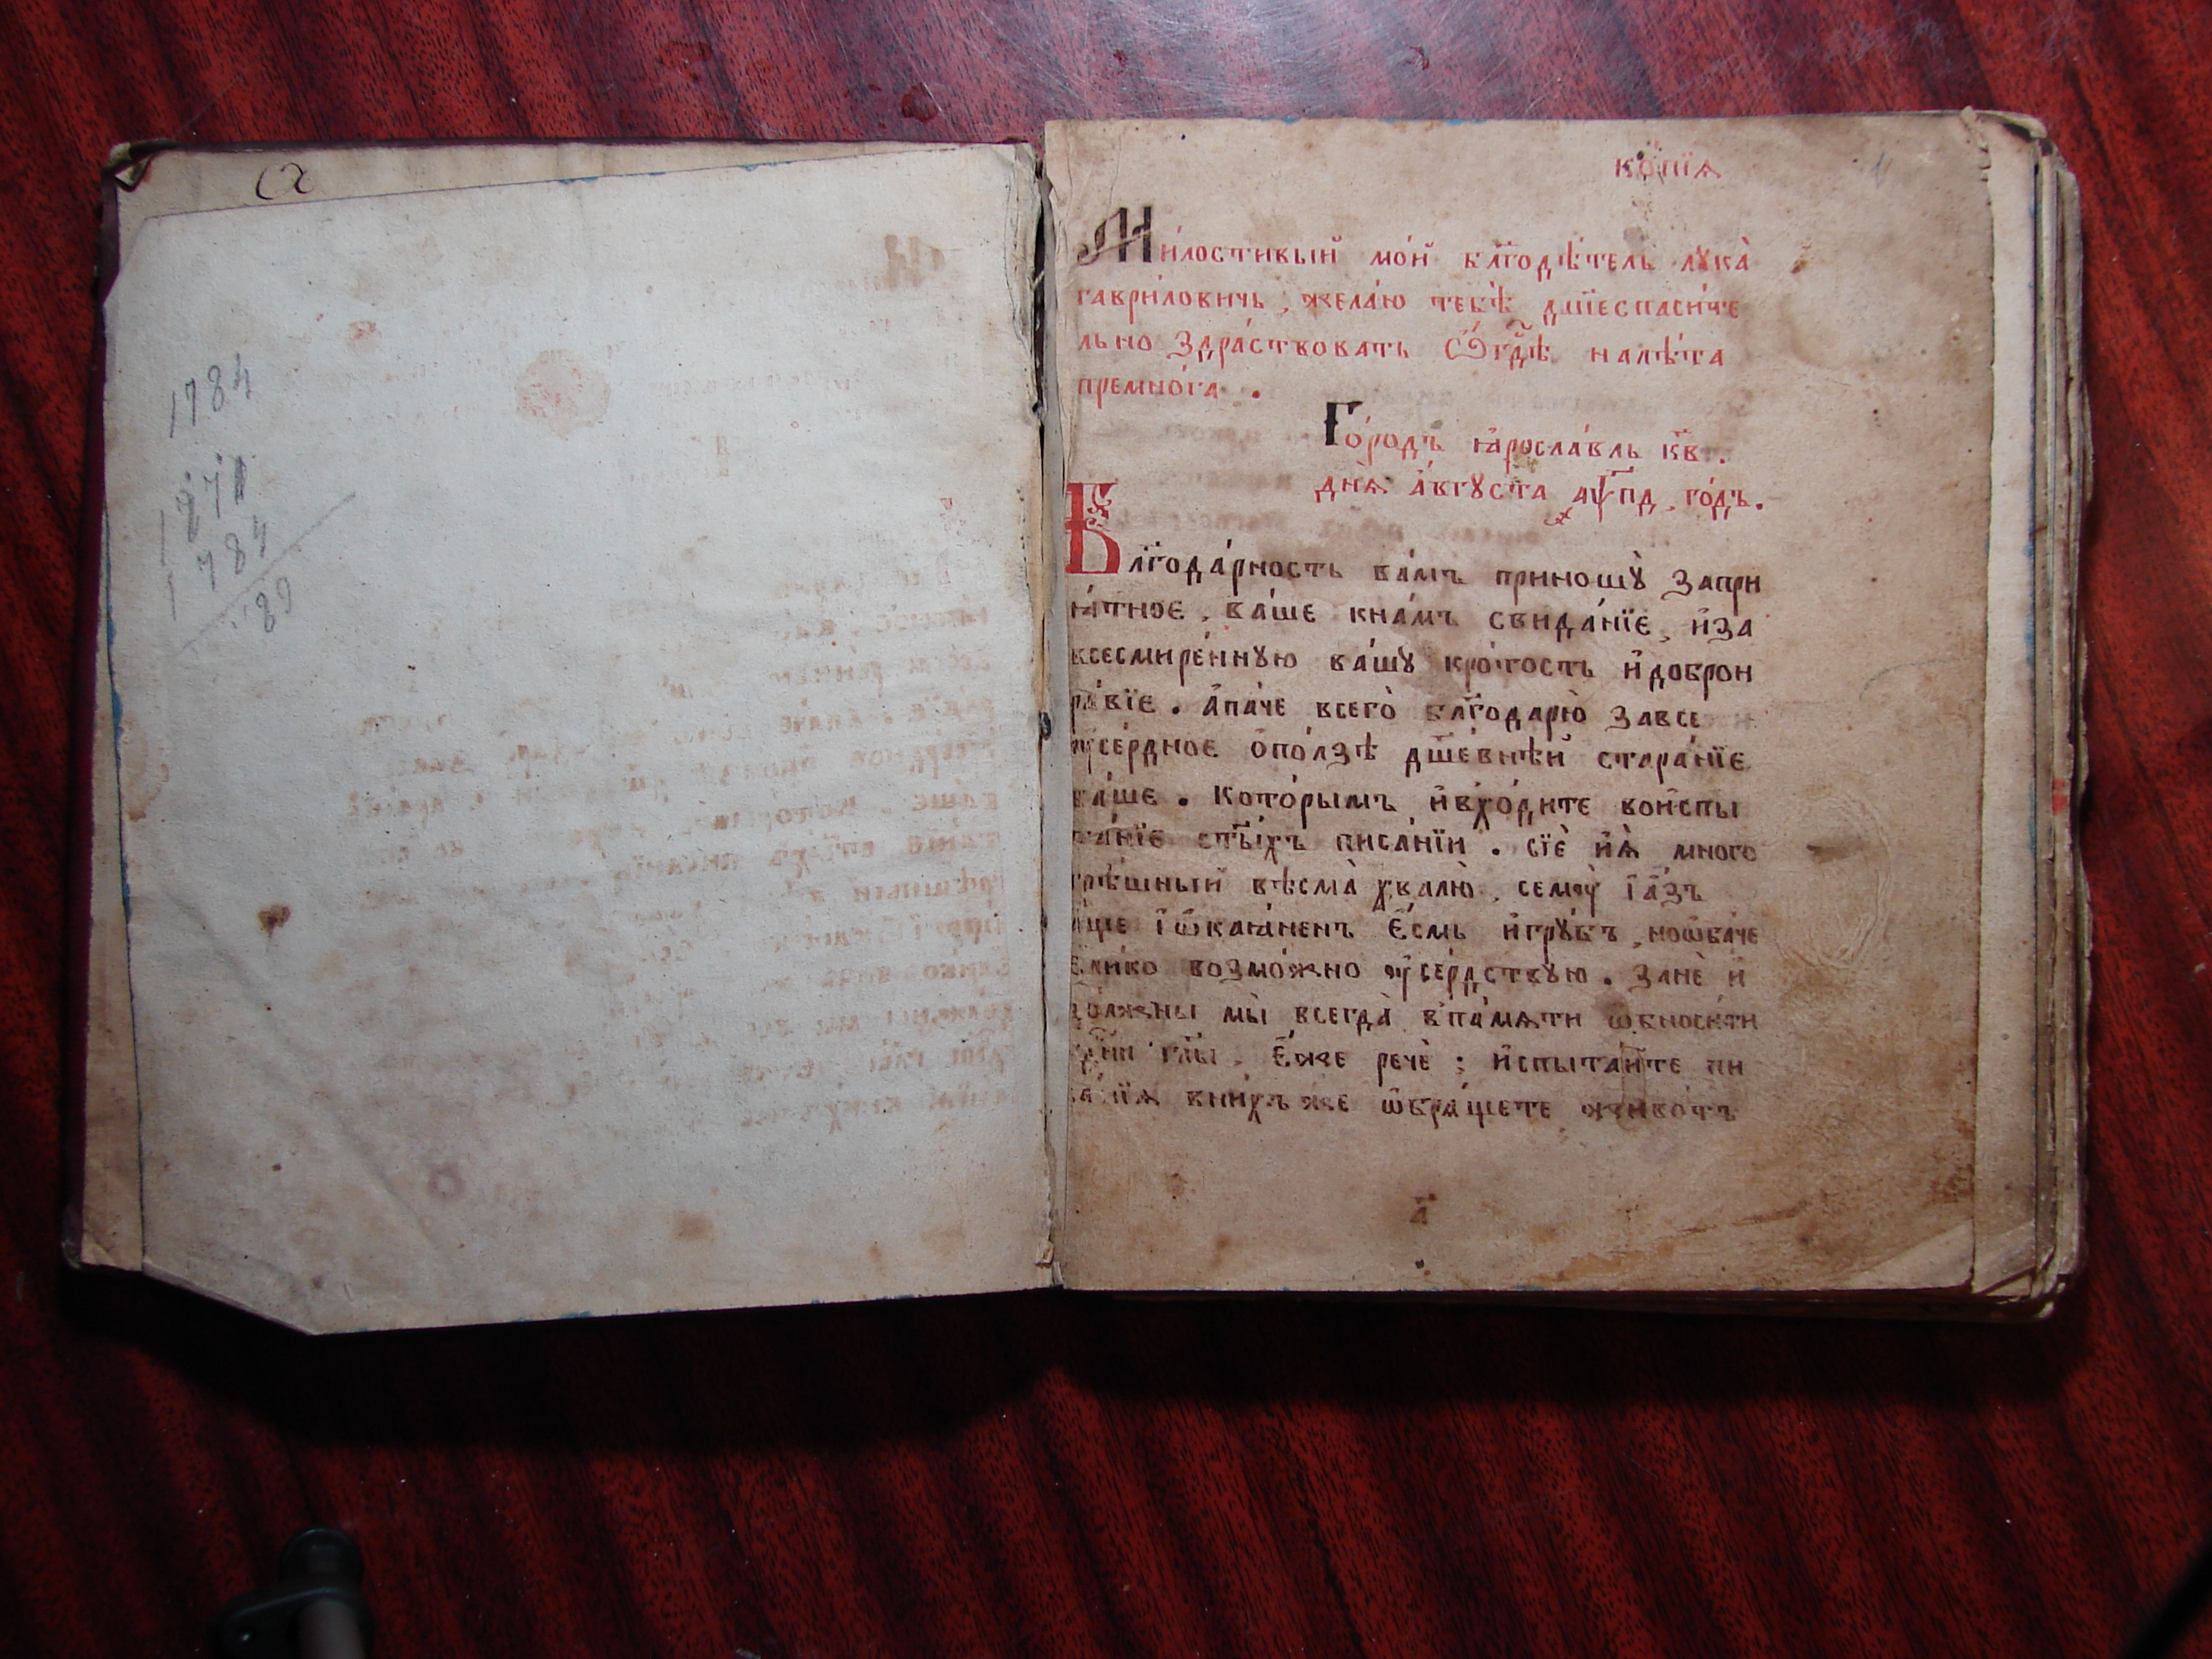 1784
1871
1784
89
ко́пїѧ
Ми́лостивый мо́й блг҃одѣ́тель лꙋка̀
гаври́ловичь, жела́ю тебѣ̀ дш҃еспаси́те
льно здра́ствовать ѡ҆ гдⷭ҇ѣ налѣ́та
премно́га .
Го́родъ ꙗ҆росла́вль к҃в .
днѧ̀ а҆́вгꙋста ҂аѱ҃пд го́дъ.
Блг҃ода́рность ва́мъ приношꙋ̀ запри
ꙗ́тное, ва́ше кна́мъ свида́нїе, и҆за
всесмире́ннꙋю ва́шꙋ кро́тость и҆доброн
ра́вїе . а҆па́че всего̀ блг҃одарю̀ завсе
ᲂу҆се́рдное ѻ҆по́лзѣ дш҃е́внѣй стара́нїе
ва́ше . кото́рымъ и҆вхо́дите вои҆спы
та́нїе ст҃ы́хъ писа́нїи . сїѐ и҆ѧ̀ много
грѣ́шный вѣсма̀ хвалю̀, семꙋ̀ і҆а҆́зъ
а҆́ще і҆ѡ҆каꙗ́ненъ є҆́смь и҆грꙋ́бъ, ноѻба́че
є҆ли́ко возмо́жно ᲂу҆се́рдствꙋю . занѐ и҆
до́лжны мы̀ всегда̀ впа́мѧти ѡ҆бноси́ти
гл҃ы, є҆́же речѐ ; и҆спыта́йте пи
са́нїѧ вни́хъ же ѡ҆брѧ́щете живо́тъ
а҃